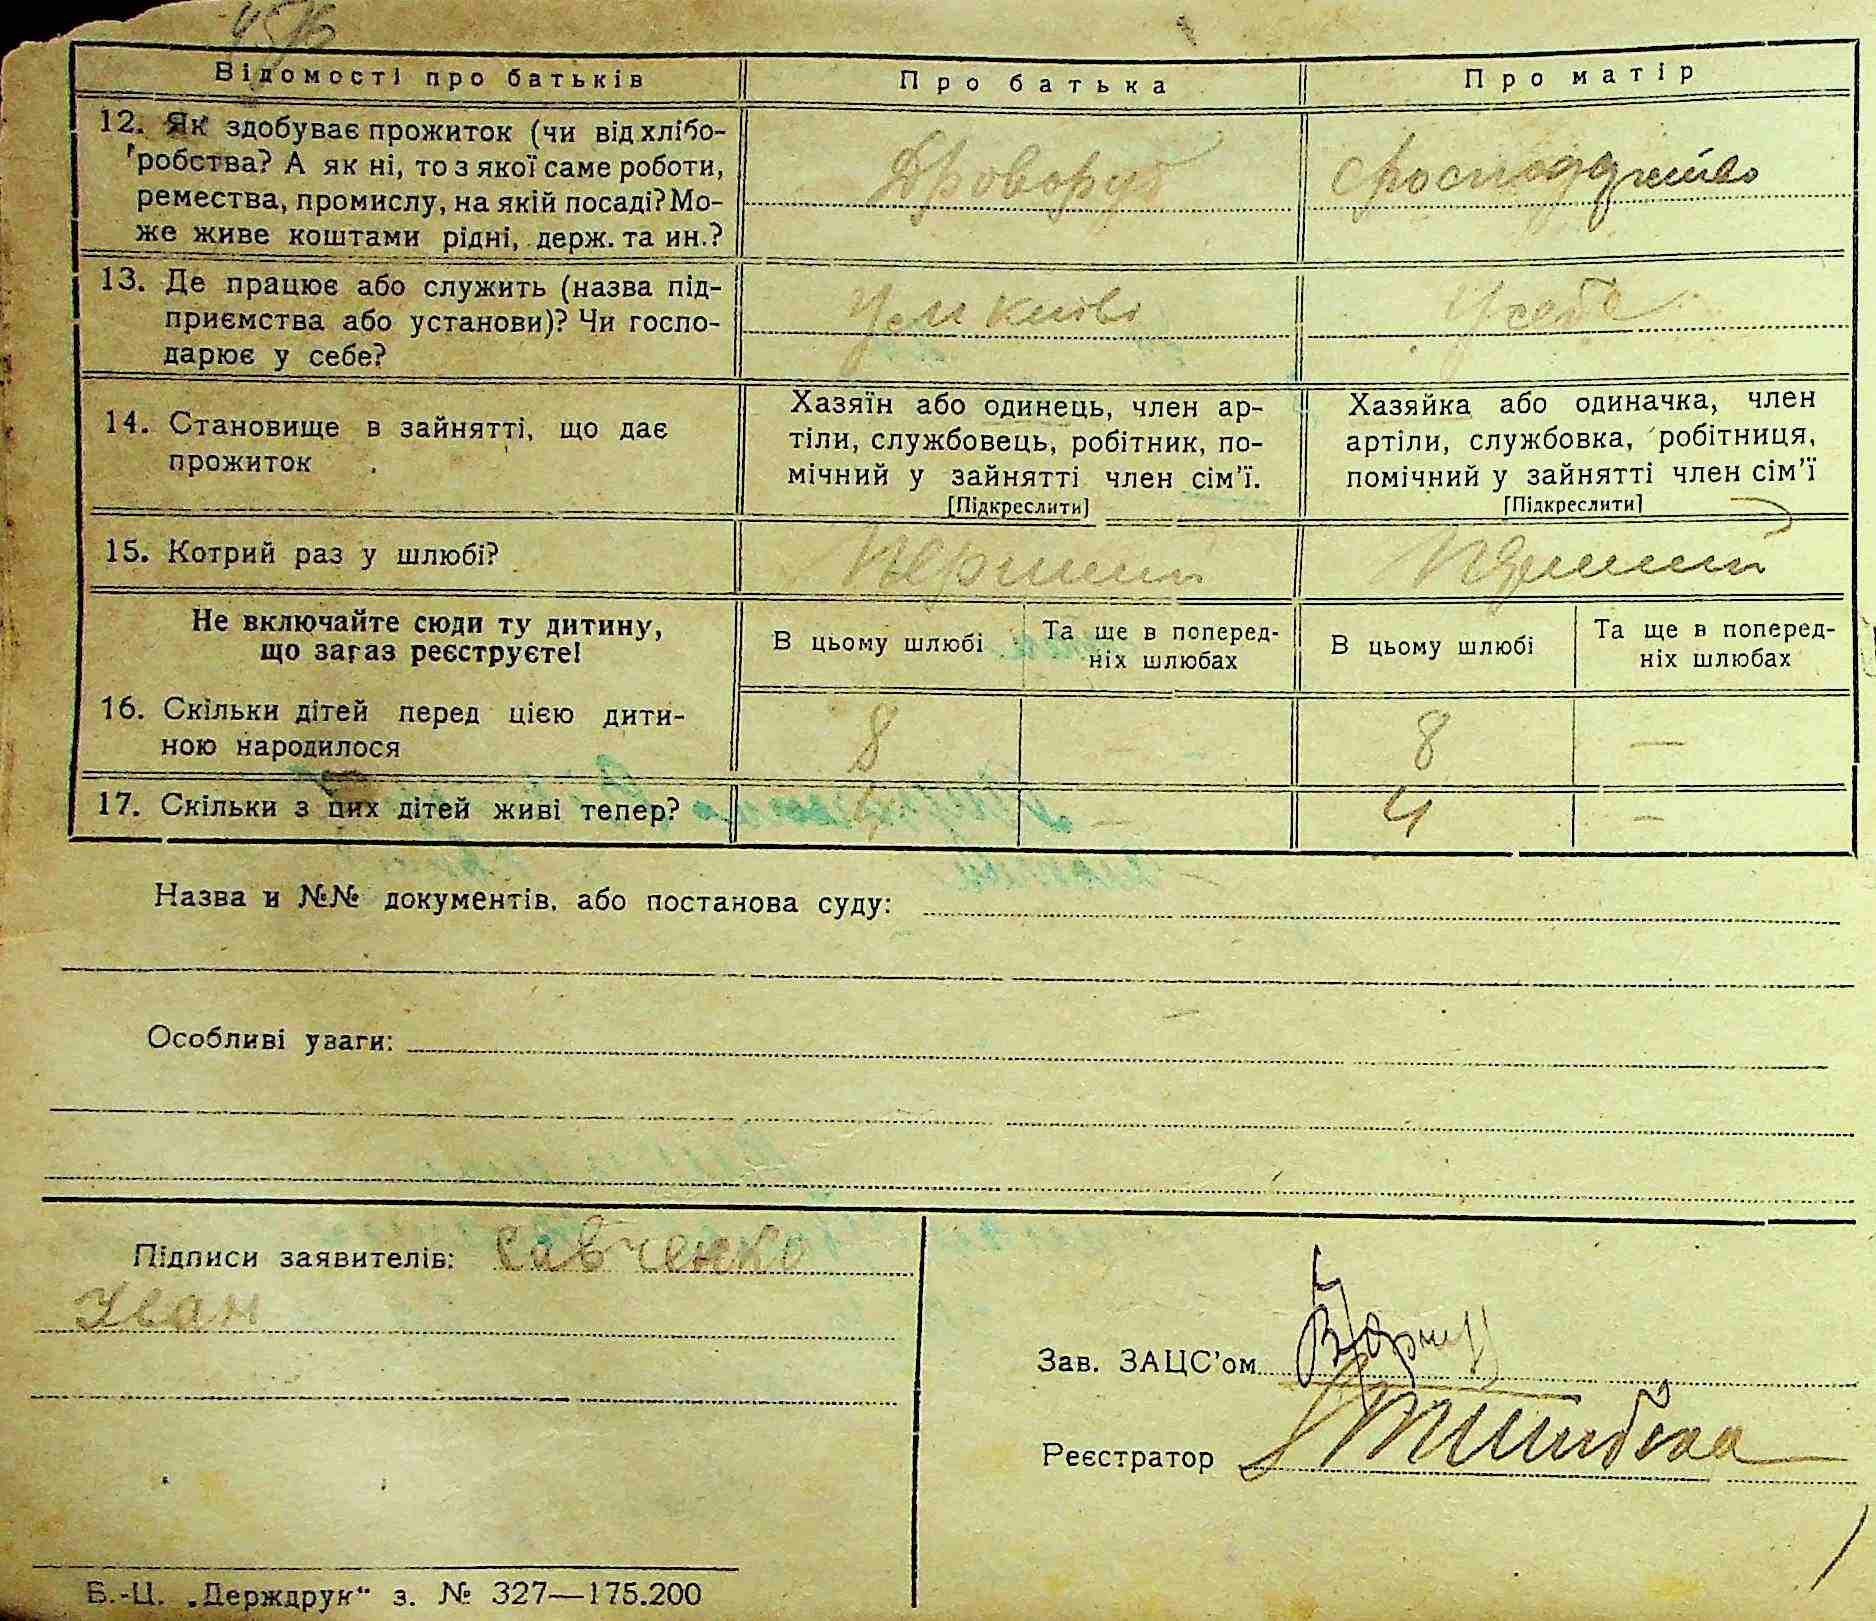 Відомості про батьків
Про батька
Про матір
12. Як здобуває прожиток (чи від хлібо-
робства? А як ні, то з якої саме роботи,
ремества, промислу, на якій посаді? Мо-
же живе коштами рідні, держ. та ин.?
Дроворуб
13. Де працює або служить (назва під-
приємства або установи)? Чи госпо-
дарює у себе?
Київі
У себе
14. Становище в зайнятті, що дає
прожиток
Хазяїн або одинець, член ар-
тіли, службовець, робітник, по-
мічний у зайнятті член сім'ї.
[Підкреслити]
Хазяйка або одиначка, член
артіли, службовка, робітниця,
помічний у зайнятті член сім'ї
[Підкреслити]
15. Котрий раз у шлюбі?
Перший
Перший
Не включайте сюди ту дитину,
що зараз реєструєте!
В цьому шлюбі
Та ще в поперед-
ніх шлюбах
В цьому шлюбі
Та ще в поперед-
ніх шлюбах
16. Скільки дітей перед цією дити-
ною народилося
8 — 8 —
17. Скільки з цих дітей живі тепер?
4 — 4 —
Назва и №№ документів, або постанова суду:
Особливі уваги:
Підписи заявителів: Савченко
Іван
Зав. ЗАЦС'ом
Реєстратор
Б.-Ц. „Держдрук“ з. № 327—175.200